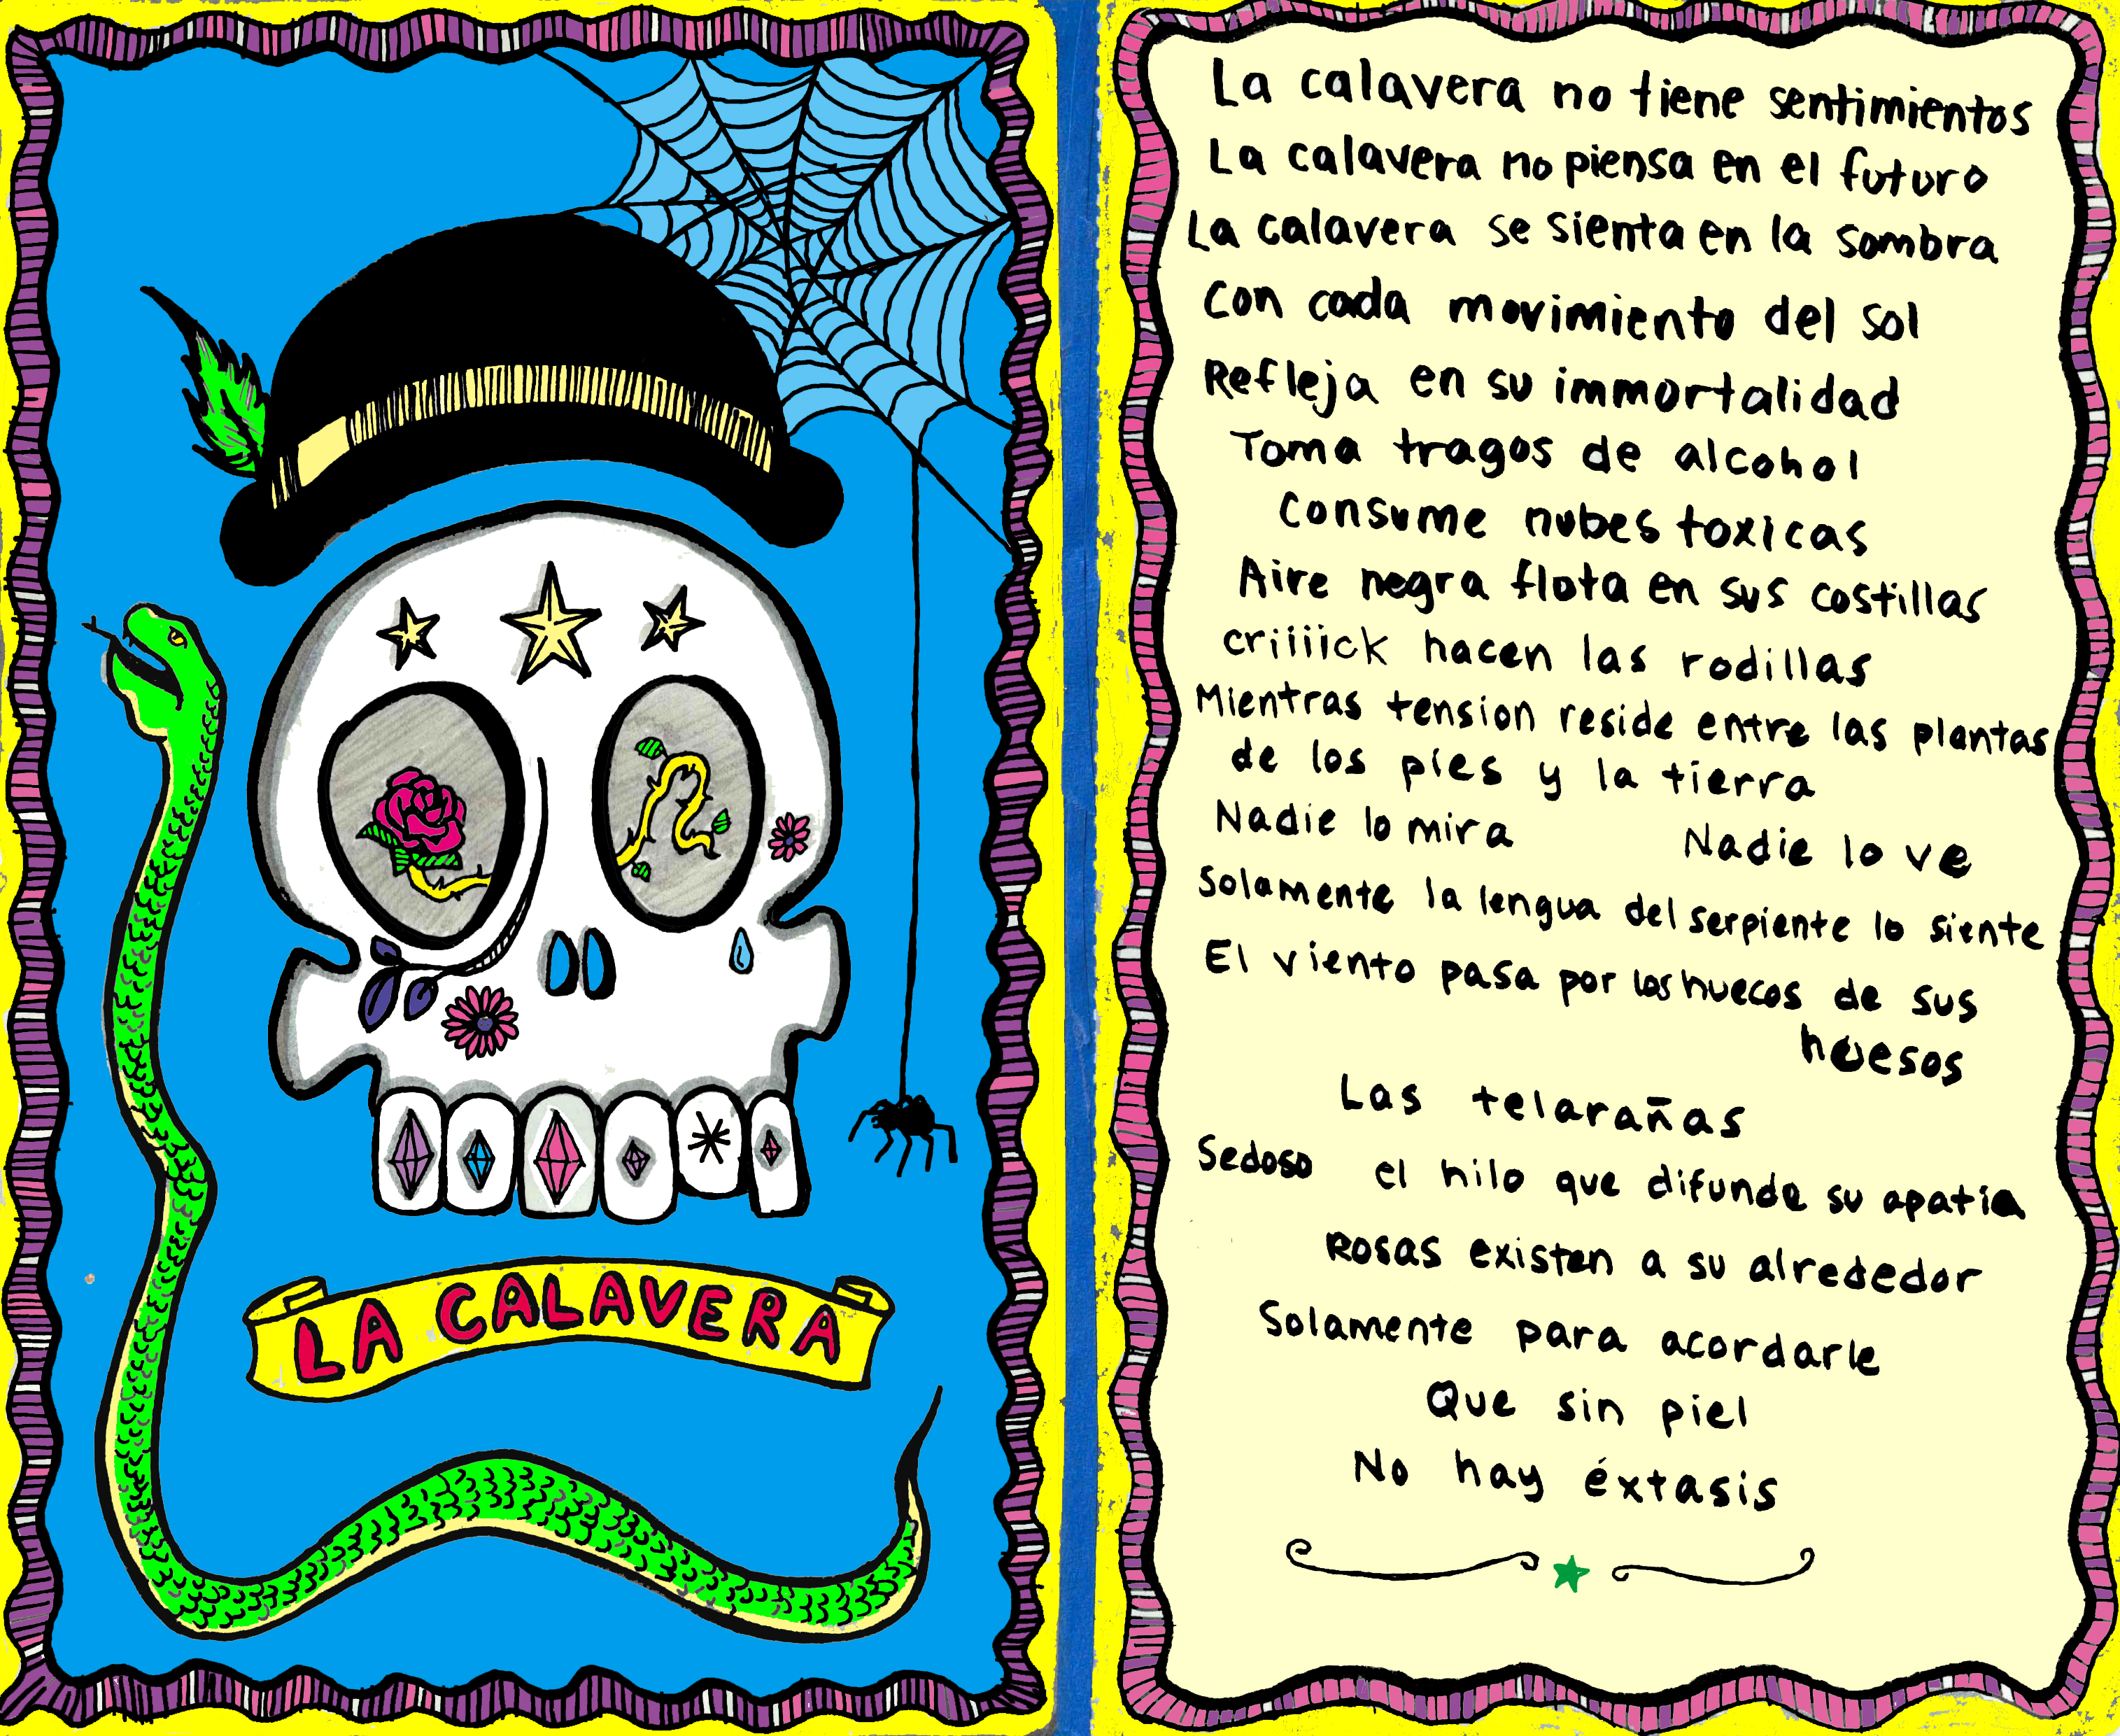 LA CALAVERA
La calavera no tiene sentimientos
La calavera no piensa en el futuro
La calavera se sienta en la sombra
Con cada movimiento del sol
Refleja en su immortalidad
Toma tragos de alcohol
Consume nubes toxicas
Aire negra flota en sus costillas
criiiick hacen las rodillas
Mientras tension reside entre las plantas
de los pies y la tierra
Nadie lo mira Nadie lo ve
Solamente la lengua del serpiente lo siente
El viento pasa por los huecos de sus
huesos
Las telarañas
Sedoso el hilo que difunde su apatia
Rosas existen a su alrededor
Solamente para acordarle
Que sin piel
No hay éxtasis